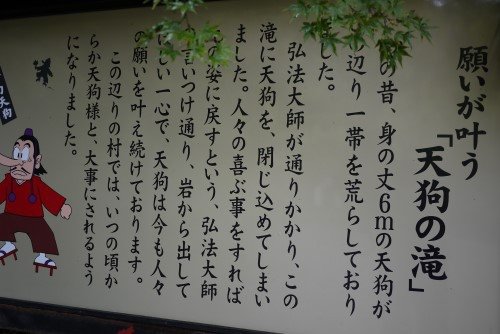 願いが叶う
「天狗の滝」
の昔、身の丈6mの天狗が
辺り一帯を荒らしており
ました。
弘法大師が通りかかり、この
滝に天狗を、閉じ込めてしまい
ました。人々の喜ぶ事をすれば
の姿に戻すという、弘法大師
の言いつけ通り、岩から出して
しい一心で、天狗は今も人々
の願いを叶え続けております。
この辺りの村では、いつの頃か
らか天狗様と、大事にされるよう
になりました。
天狗